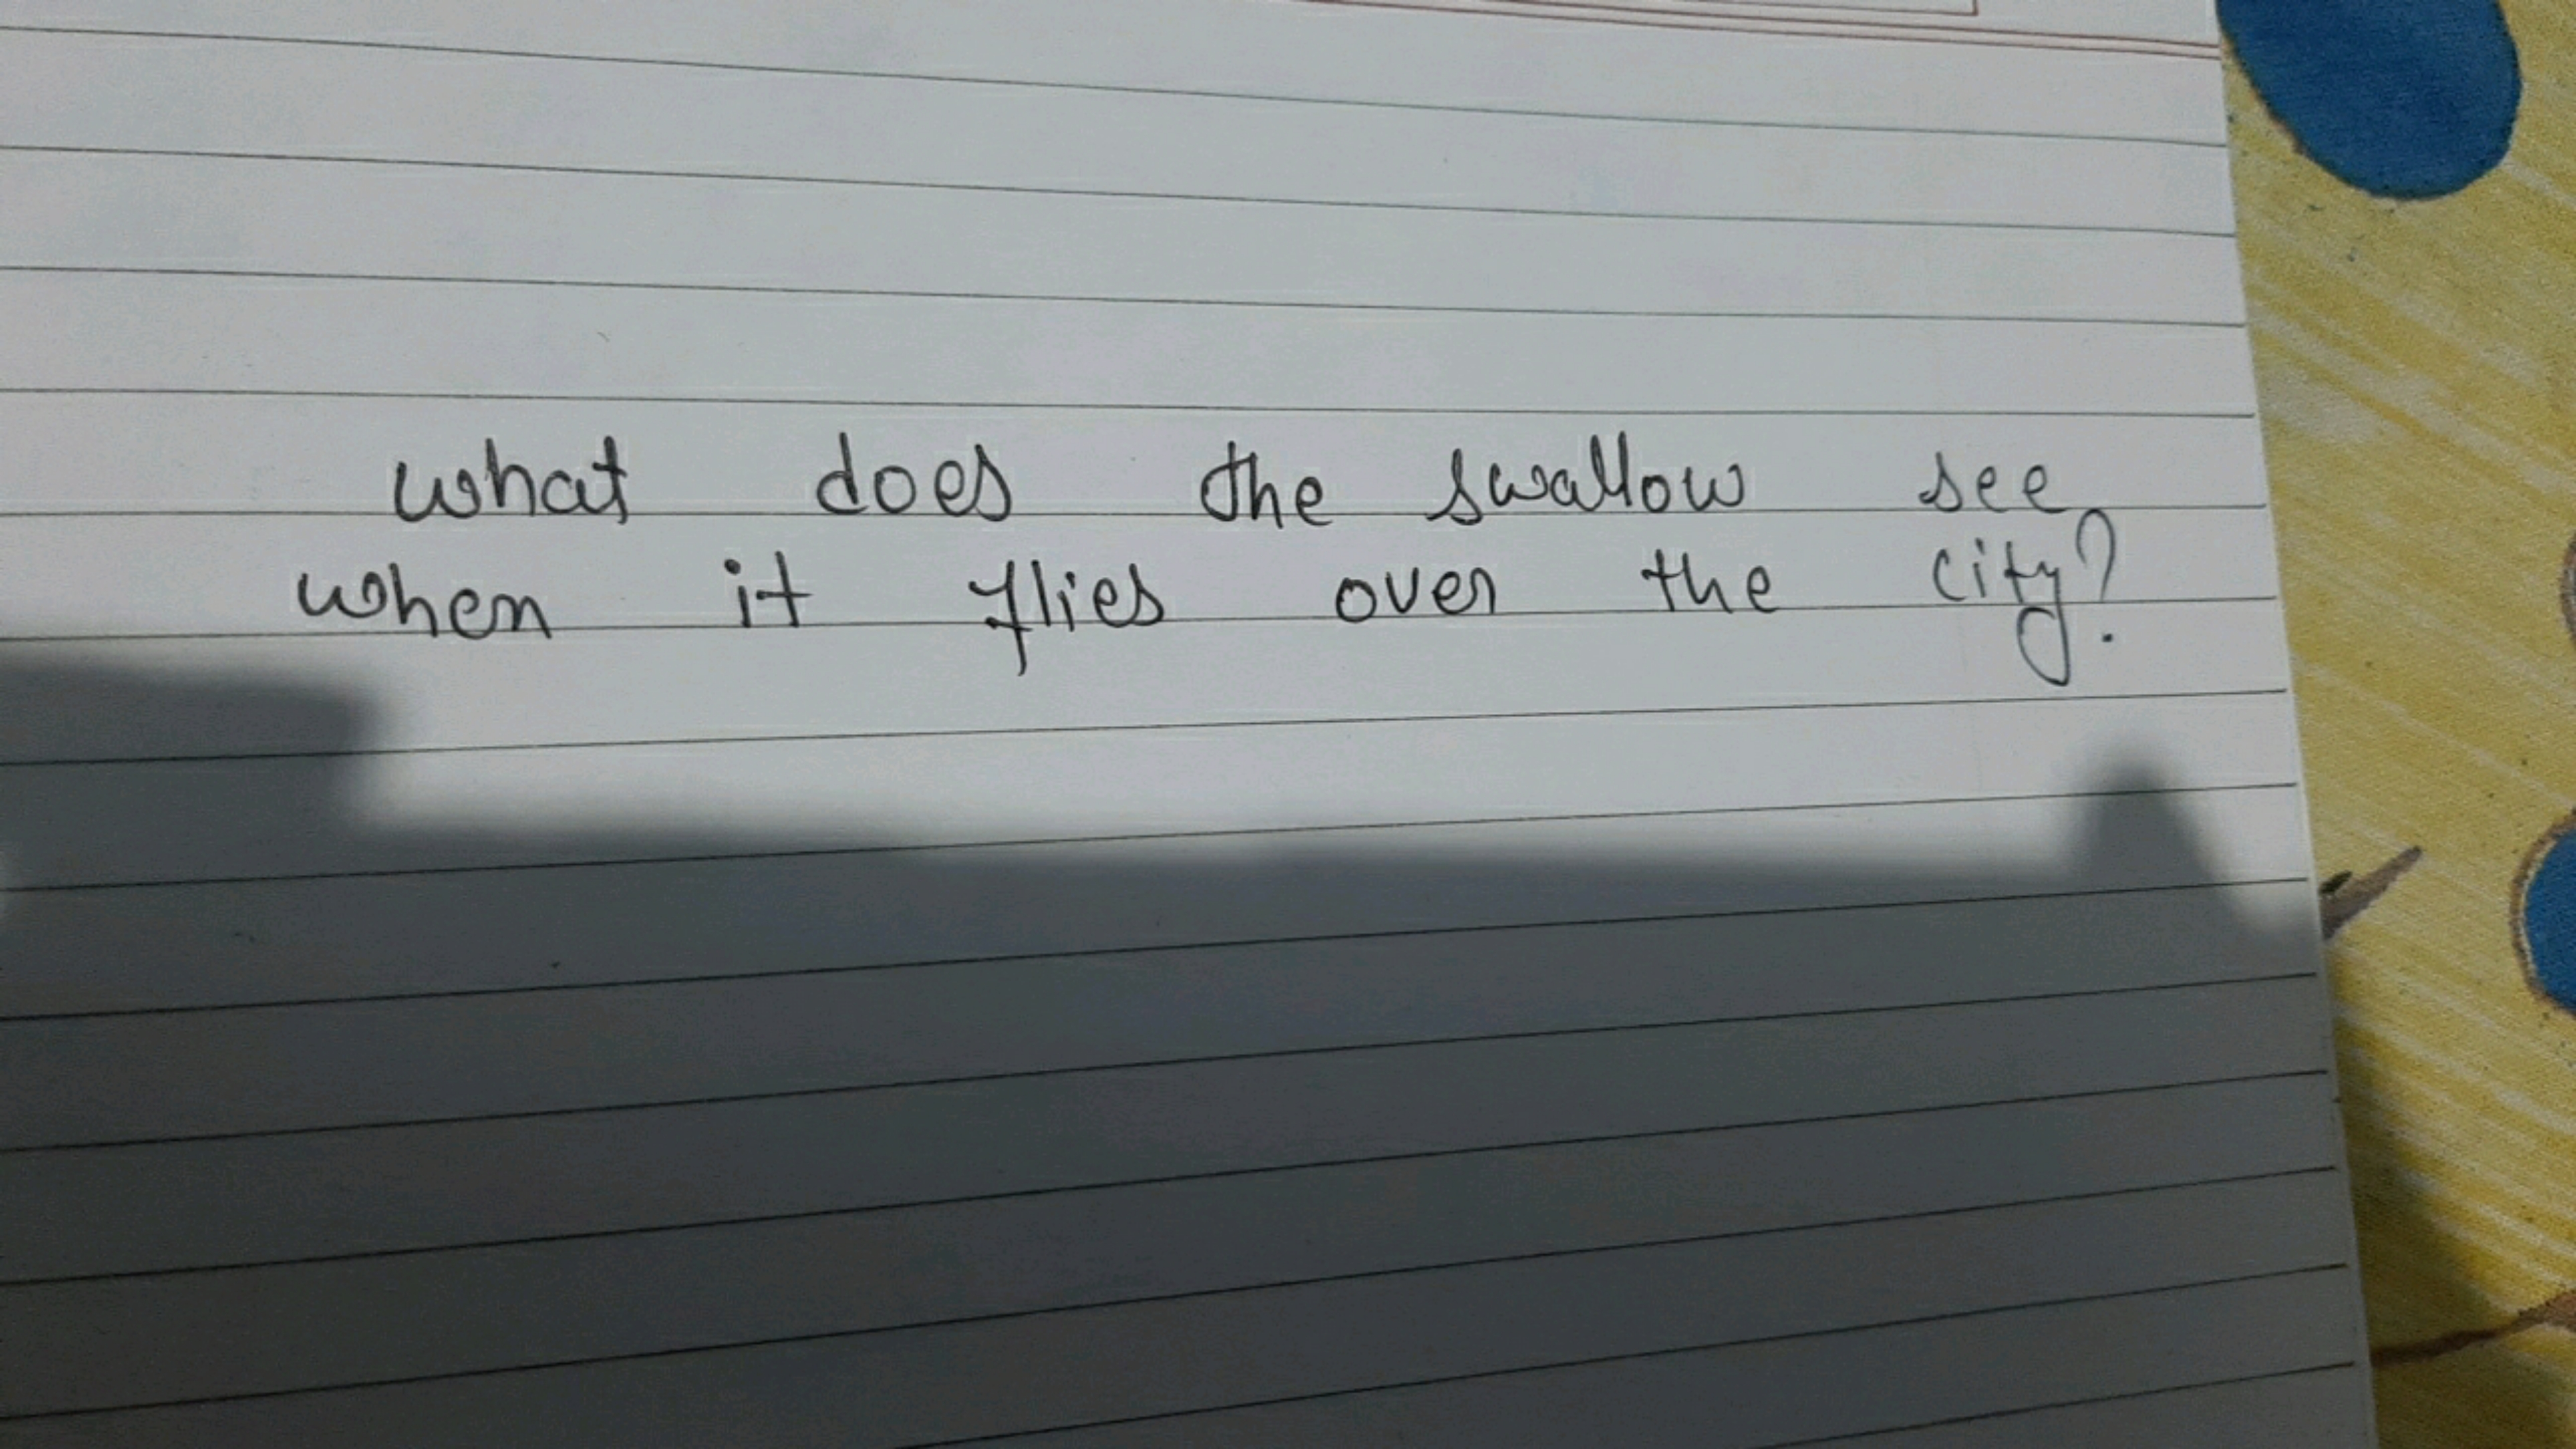 what does the swallow see
when it flies over the city?